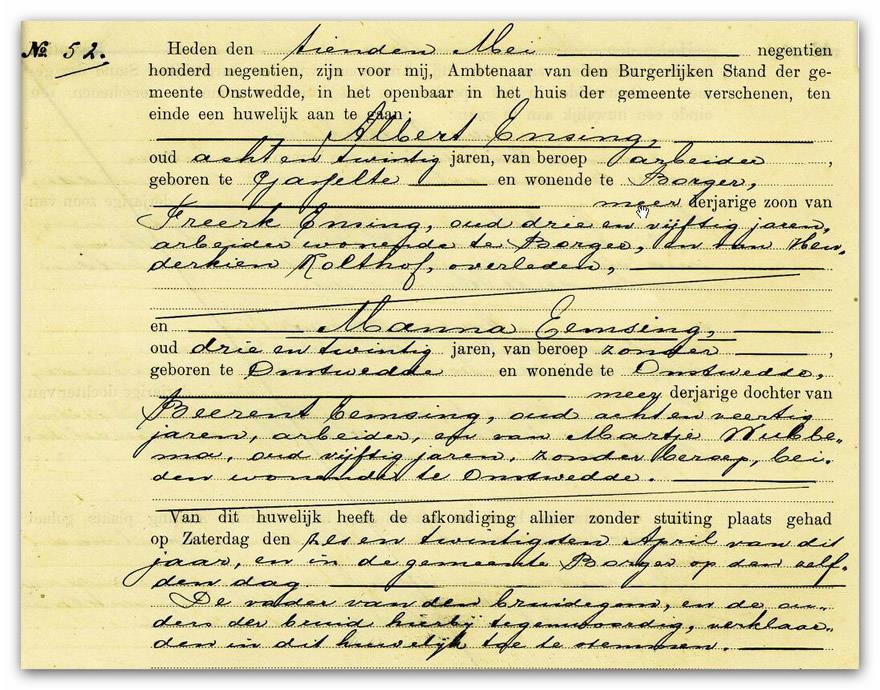 No. 52.
Heden den tienden Mei negentien
honderd negentien, zijn voor mij, Ambtenaar van den Burgerlijken Stand der ge-
meente Onstwedde, in het openbaar in het huis der gemeente verschenen, ten
einde een huwelijk aan te gaan:
Albert Ensing,
oud acht en twintig jaren, van beroep arbeider,
geboren te Gasselte en wonende te Borger,
meerderjarige zoon van
Freerk Ensing, oud drie en vijftig jaren,
arbeider wonende te Borger, en van Hen-
derkien Kolthof, overleden,
en Manna Eemsing,
oud drie en twintig jaren, van beroep zonder,
geboren te Onstwedde en wonende te Onstwedde,
meerderjarige dochter van
Beerent Eemsing, oud acht en veertig
jaren, arbeider, en van Martje Wubbe-
ma, oud vijftig jaren, zonder beroep, bei-
den wonende te Onstwedde.
Van dit huwelijk heeft de afkondiging alhier zonder stuiting plaats gehad
op Zaterdag den zes en twintigsten April van dit
jaar, en in de gemeente Borger op den zelf-
den dag.
De vader van den bruidegom, en de ou-
ders der bruid hierbij tegenwoordig, verklaar-
den in dit huwelijk toe te stemmen.